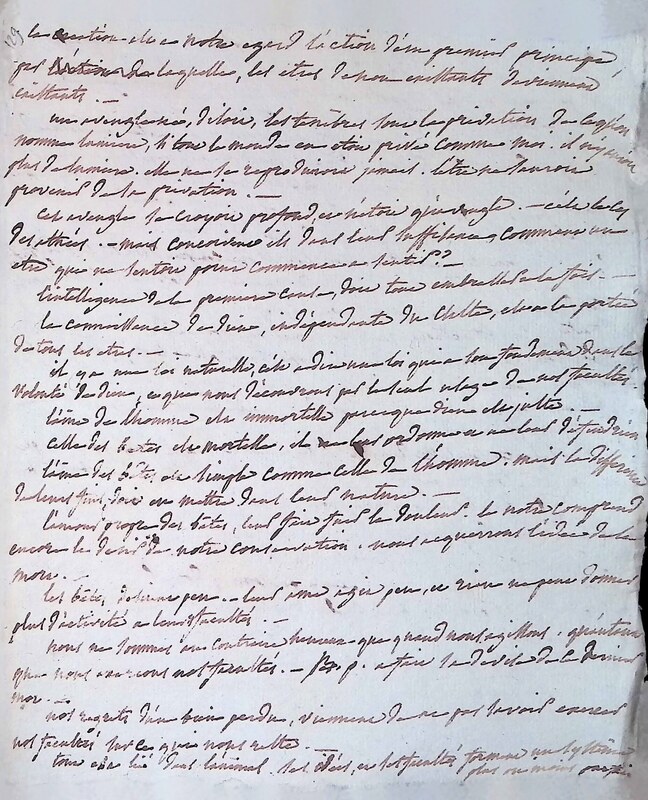 la création est a notre egard l'action d'un premier principe,
par laquelle, les etres de non existants deviennent
existants. —
un aveugle né, disoit, les ténèbres sont la privation de ce qu'on
nomme lumiere, si tout le monde en etoit privé comme moi. il n'y auroit
plus de lumiere. elle ne se reproduiroit jamais. l'etre ne sauroit
provenir de la privation. —
cet aveugle se croyoit profond, et n'etoit qu'aveugle. — c'est le cas
des athées. — mais concoivent ils dans leur suffisance, comment un
etre que ne sentoit point commence a sentir? —
l'intelligence de la premiere cause, doit tout embrasser a la fois. —
la connoissance de dieu, indépendante du culte, est a la portée
de tous les etres. —
il y a une loi naturelle, c'est a dire une loi qui a son fondement dans la
volonté de dieu, et que nous découvrons par le seul usage de nos facultés.
l'ame de l'homme est immortelle parceque dieu est juste. —
celle des bêtes est mortelle, il ne leur ordonne et ne leur défend rien
l'ame des bêtes, est simple comme celle de l'homme, mais la difference
de leurs fins, doit en mettre dans leur nature. —
l'amour propre des bêtes, leur fait fuir la douleur. le notre comprend
encore le desir de notre conservation. nous acquerrons l'idée de la
mort. —
les bêtes, désirent peu. — leur ame agit peu, et rien ne peut donner
plus d'activité a leurs facultés. —
nous ne sommes au contraire heureux que quand nous agissons. qu'autant
que nous exercons nos facultés. — p. a fait la devise de la
mort. —
nos regrets d'un bien perdu, viennent de ne pas savoir exercer
nos facultés sur ce qui nous reste. —
tout est lié dans l'animal. les idées, et les facultés forment un systeme
plus ou moins parfait